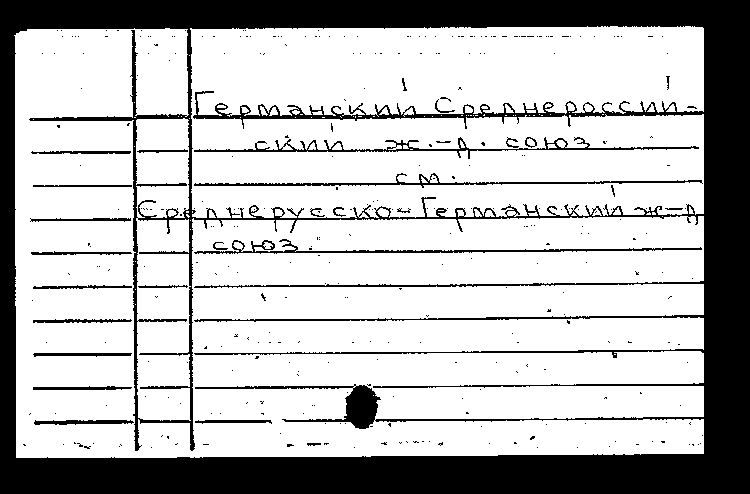 Германский Среднероссий-
ский ж.-д. союз.
см.
Среднерусско-Германский ж-д
союз.